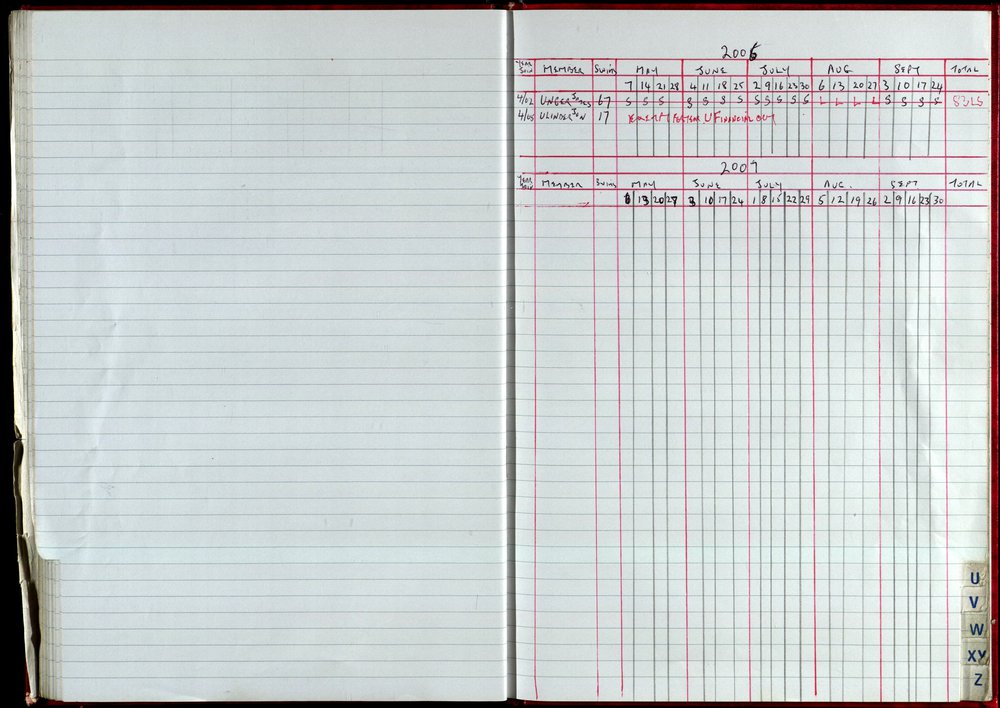 2006
YEAR JOIN MEMBER SWIMS MAY JUNE JULY AUG SEPT TOTAL
7 14 21 28 4 11 18 25 2 9 16 23 30 6 13 20 27 3 10 17 24
4/02 UNGER JAMES 67 S S S S S S S S S S S S L L L L S S S S
4/05 ULINDER JON 17 FINANCIAL OUT
2007
YEAR JOIN MEMBER SWIMS MAY JUNE JULY AUG. SEPT TOTAL
6 13 20 27 3 10 17 24 1 8 15 22 29 5 12 19 26 2 9 16 23 30
U
V
W
XY
Z